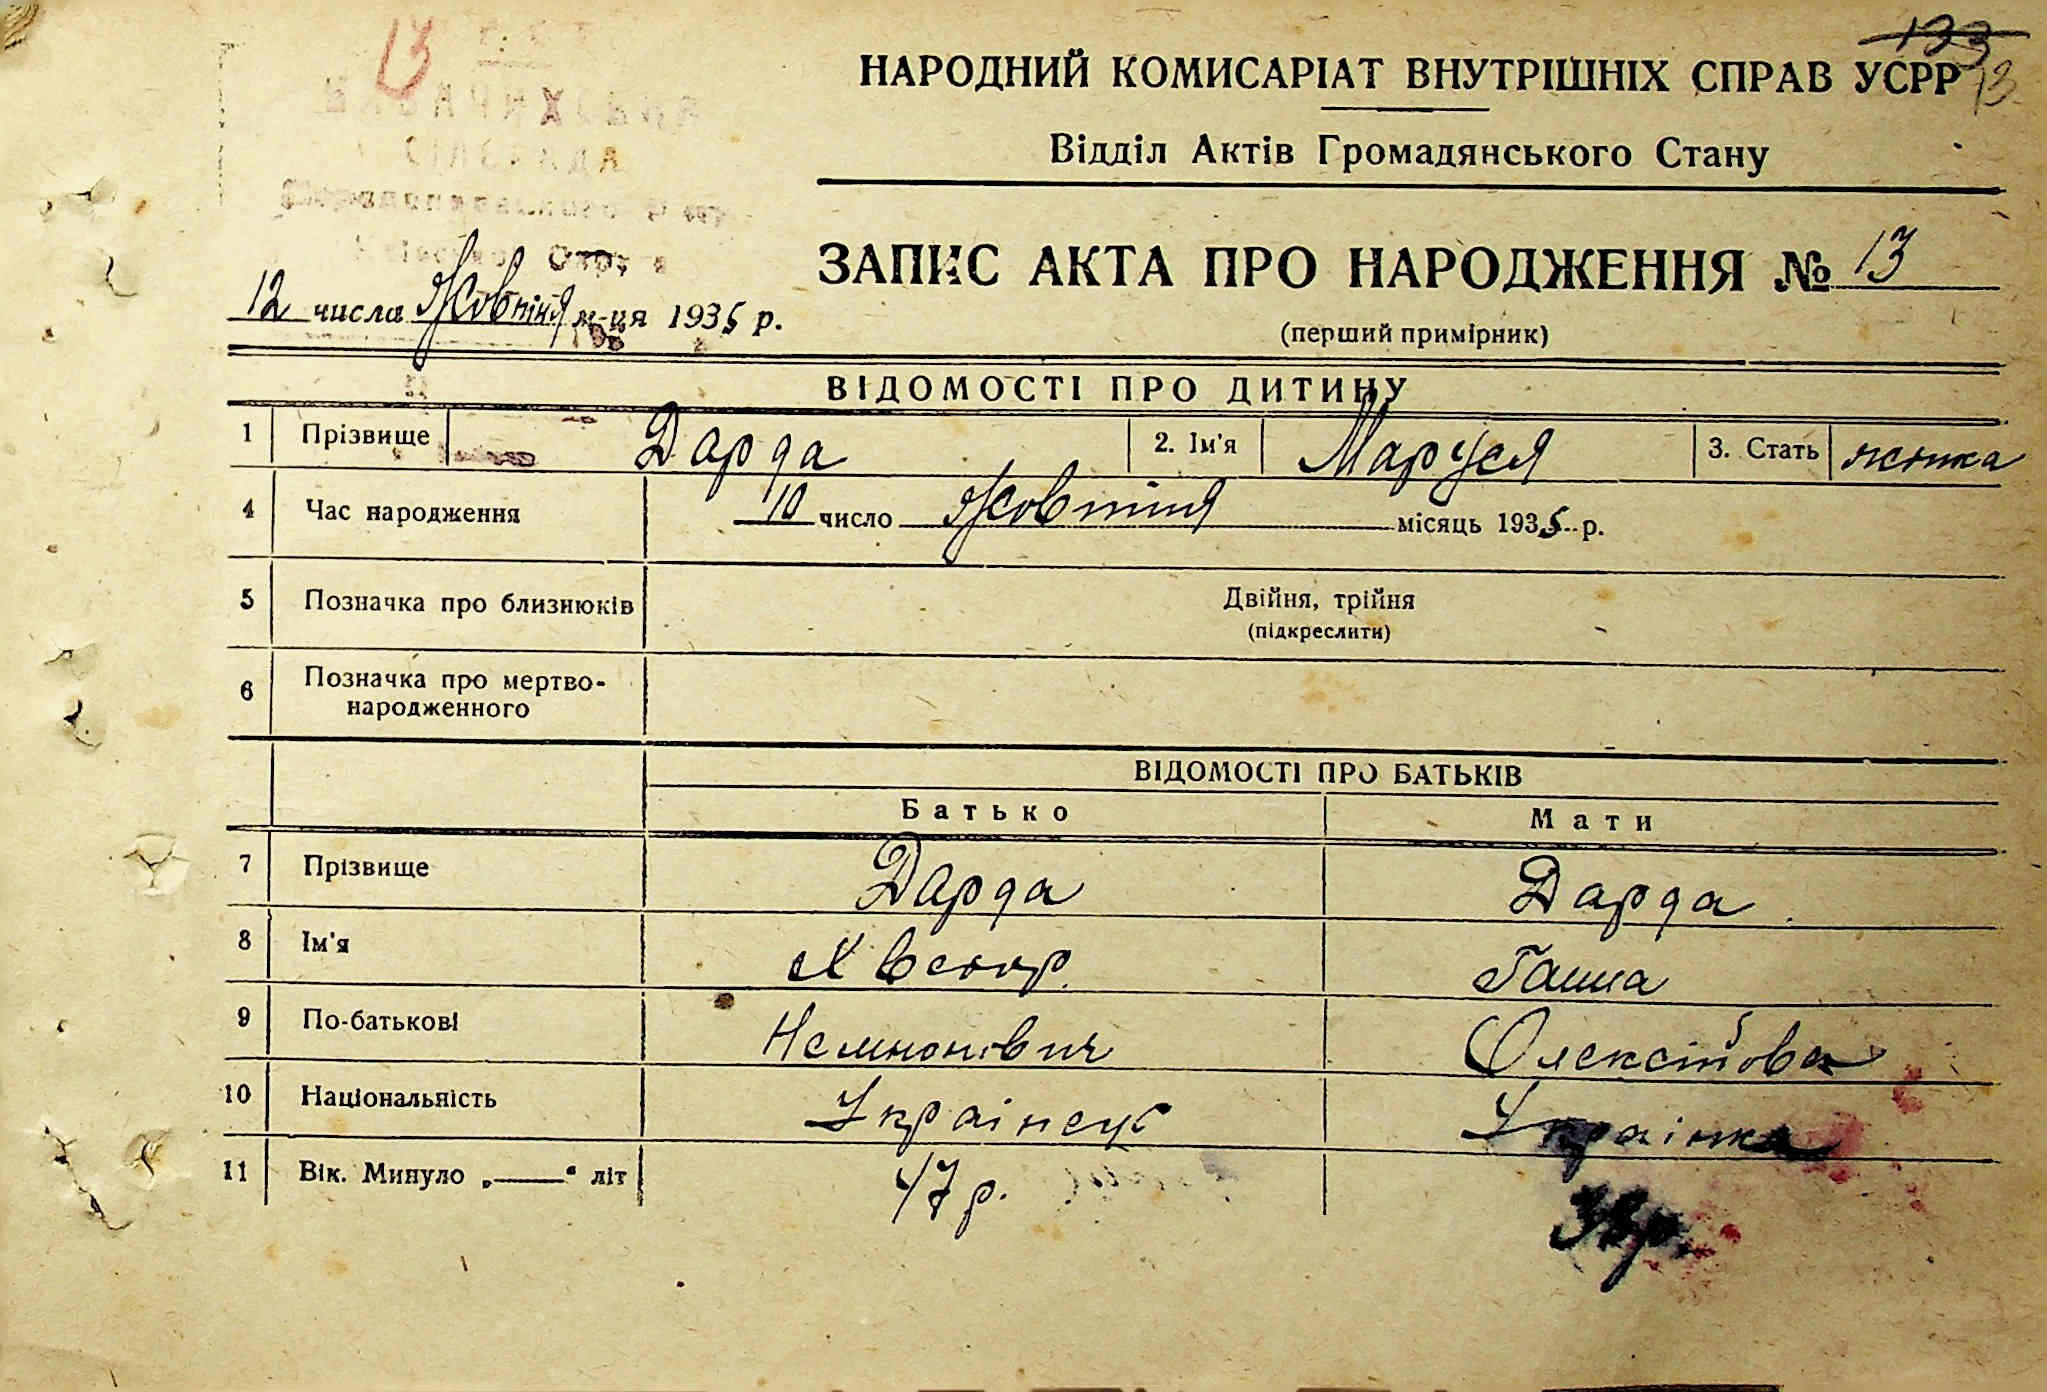 13
133
13
НАРОДНИЙ КОМИСАРІАТ ВНУТРІШНІХ СПРАВ УСРР
Відділ Актів Громадянського Стану
ЗАПИС АКТА ПРО НАРОДЖЕННЯ № 13
12 числа Жовтня м-ця 1935 р.
(перший примірник)
ВІДОМОСТІ ПРО ДИТИНУ
1 Прізвище Дарда 2. Ім'я Маруся 3. Стать жінка
4 Час народження 10 число Жовтня місяць 1935 р.
5 Позначка про близнюків Двійня, трійня
(підкреслити)
6 Позначка про мертво-
народженного
ВІДОМОСТІ ПРО БАТЬКІВ
Батько Мати
7 Прізвище Дарда Дарда
8 Ім'я Хведор Ганна
9 По-батькові Олексіївна
10 Національність Українець Українка
11 Вік. Минуло „——“ літ 47 р.